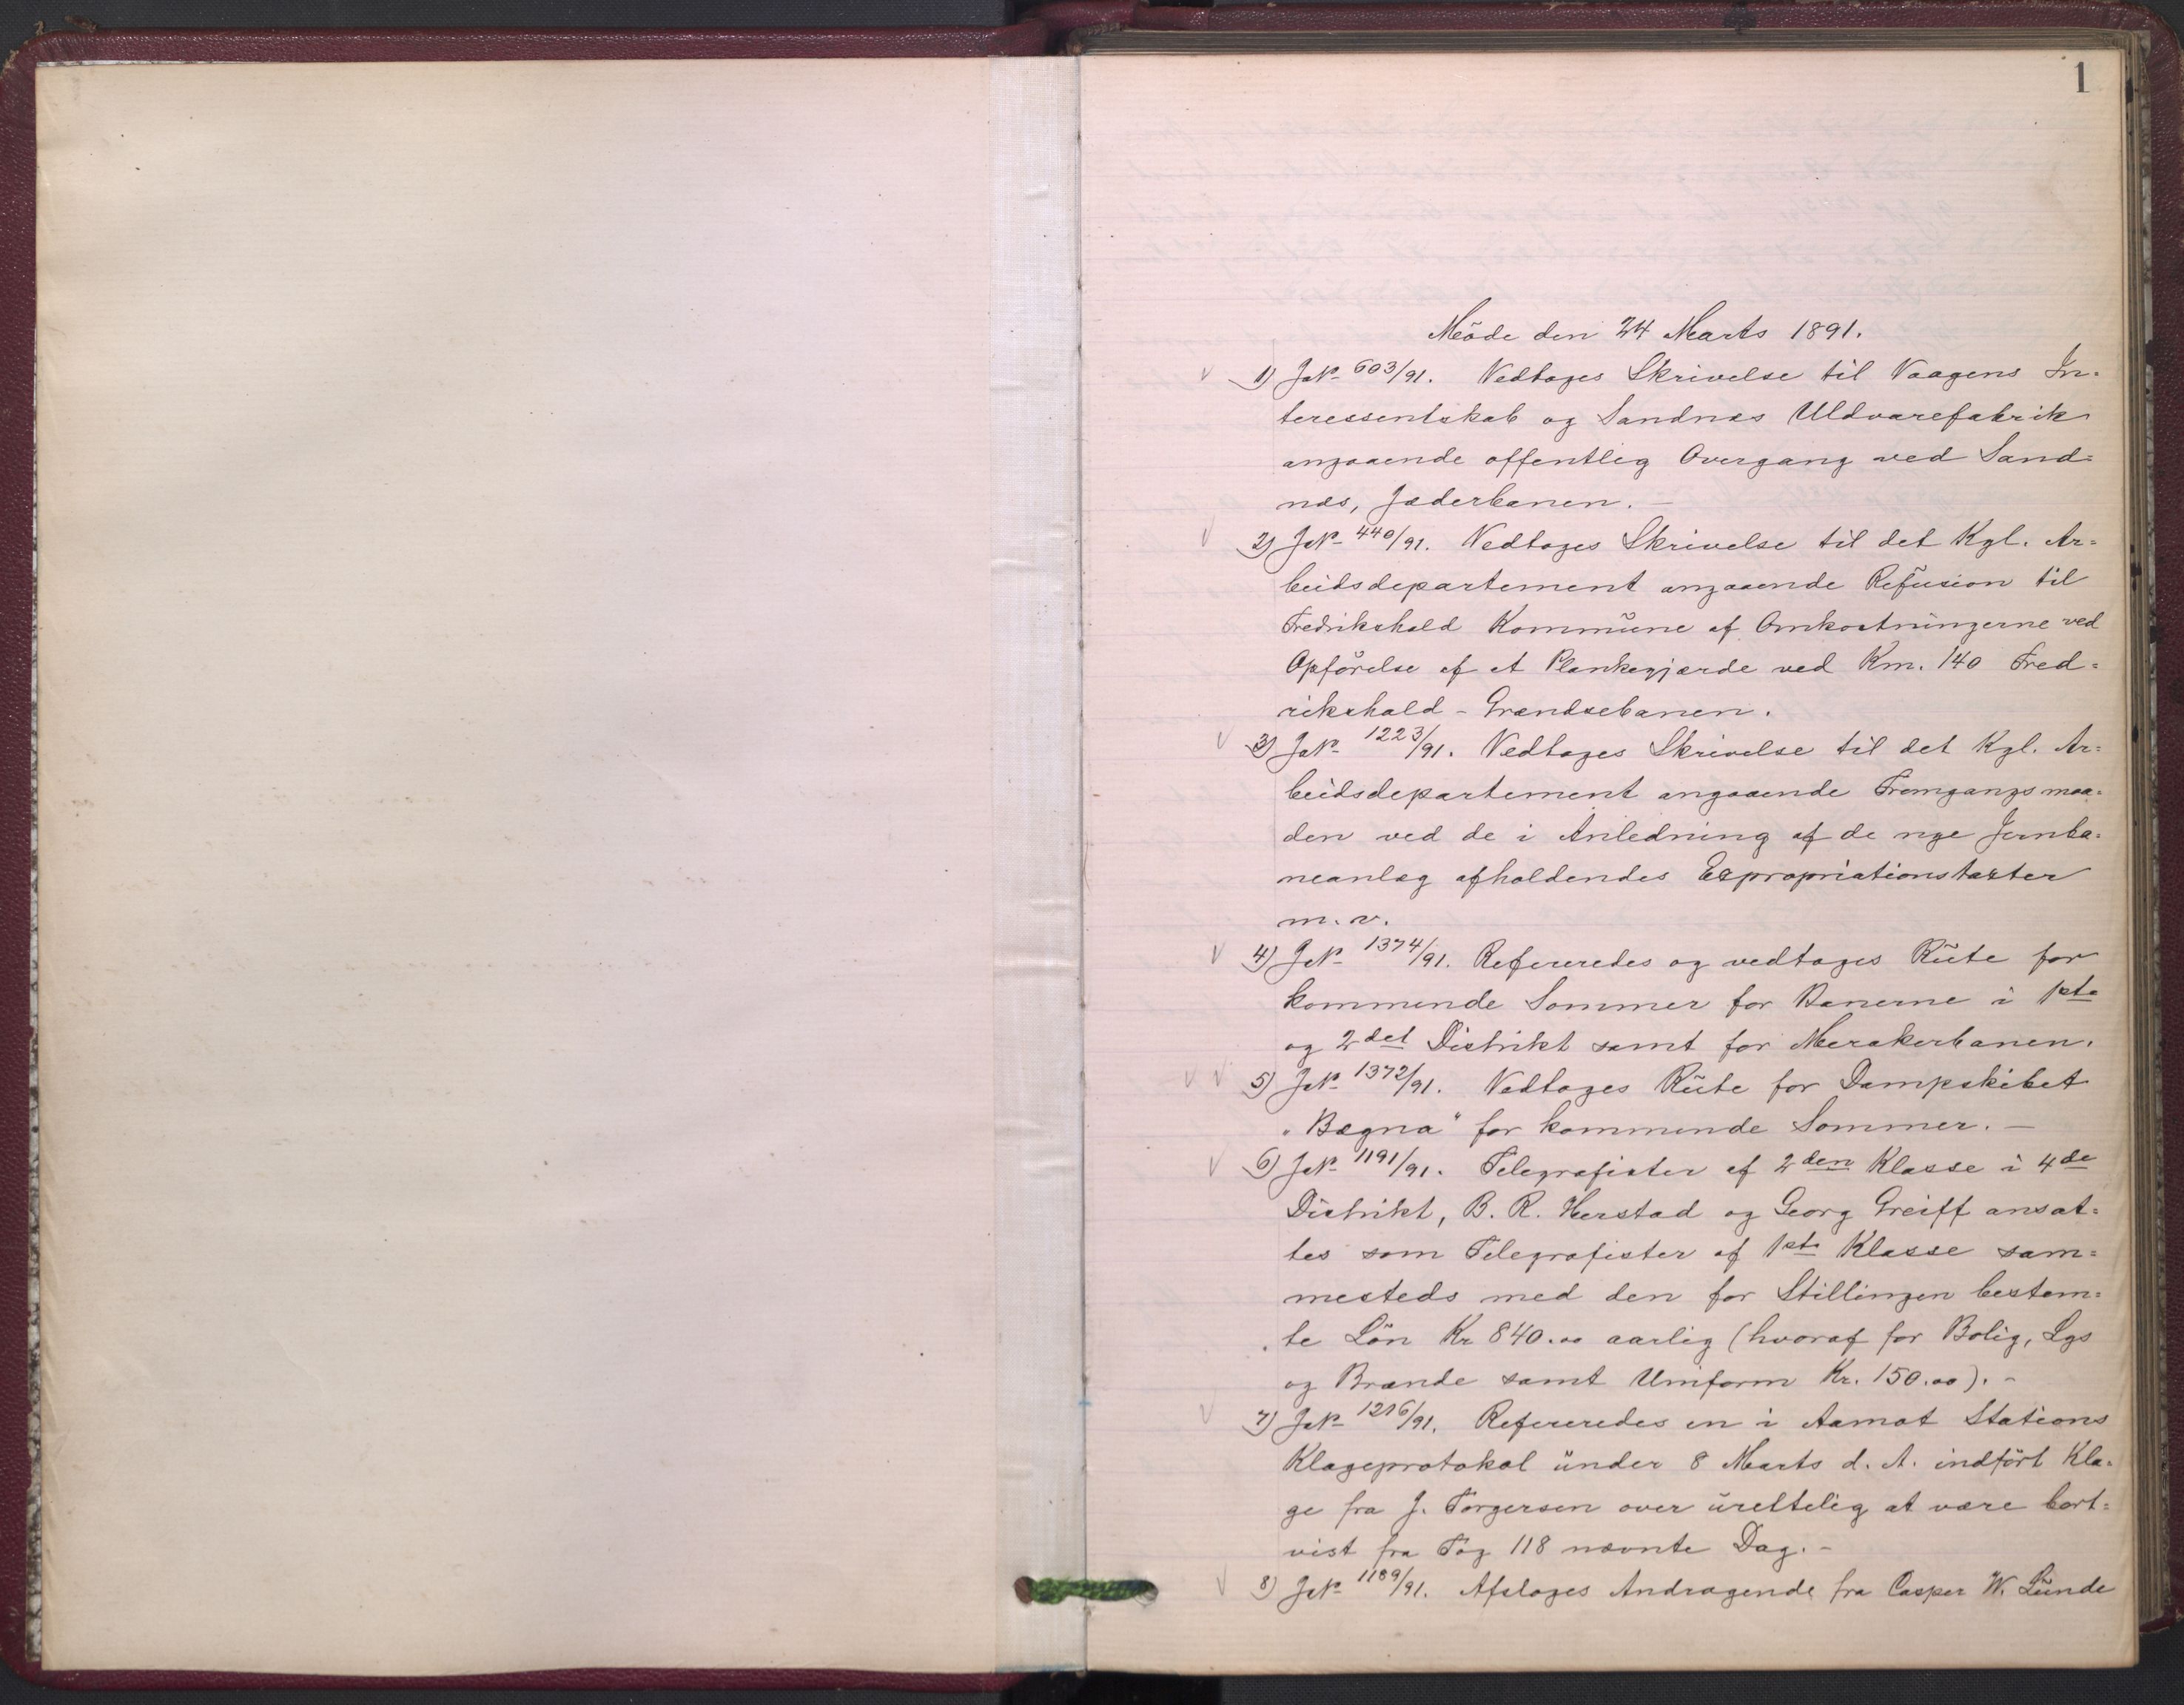 1
Möde den 24 Marts 1891.
1) JNo 603/91. Vedtoges Skrivelse til Vaagens In=
teressentskab og Sandnæs Uldvarefabrik
angaaende offentlig Overgang ved Sand=
næs, Jæderbanen. —
2) JNo 440/91. Vedtoges Skrivelse til det Kgl. Ar=
beidsdepartement angaaende Refusion til
Fredrikshald Kommune af Omkostningerne ved
Opförelse af et Plankegjærde ved Km. 140 Fred=
rikshald - Grændsebanen.
3) JNo 1223/91. Vedtoges Skrivelse til det Kgl. Ar=
beidsdepartement angaaende Fremgangsmaa=
den ved de i Anledning af de nye Jernba=
neanlæg afholdendes Expropriationstaxter
m. v.
4) JNo 1374/91. Refereredes og vedtoges Rute for
kommende Sommer for Banerne i 1ste
og 2det Distrikt samt for Merakerbanen.
5) JNo 1372/91. Vedtoges Rute for Dampskibet
"Bægna" for kommende Sommer. —
6) JNo 1191/91. Telegrafister af 2den Klasse i 4de
Distrikt, B. R. Herstad og Georg Greiff ansat=
tes som Telegrafister af 1ste Klasse sam=
mesteds med den for Stillingen bestem=
te Lön Kr 840.00 aarlig (hvoraf for Bolig, Lys
og Brænde samt Uniform Kr. 150.00). -
7) JNo 1216/91. Refereredes en i Aamot Stations
Klageprotokol under 8 Marts d. A. indfört Kla=
ge fra J. Torgersen over urettelig at være bort=
vist fra Tog 118 nævnte Dag. -
8) JNo 1189/91. Afsloges Andragende fra Casper W. Lunde